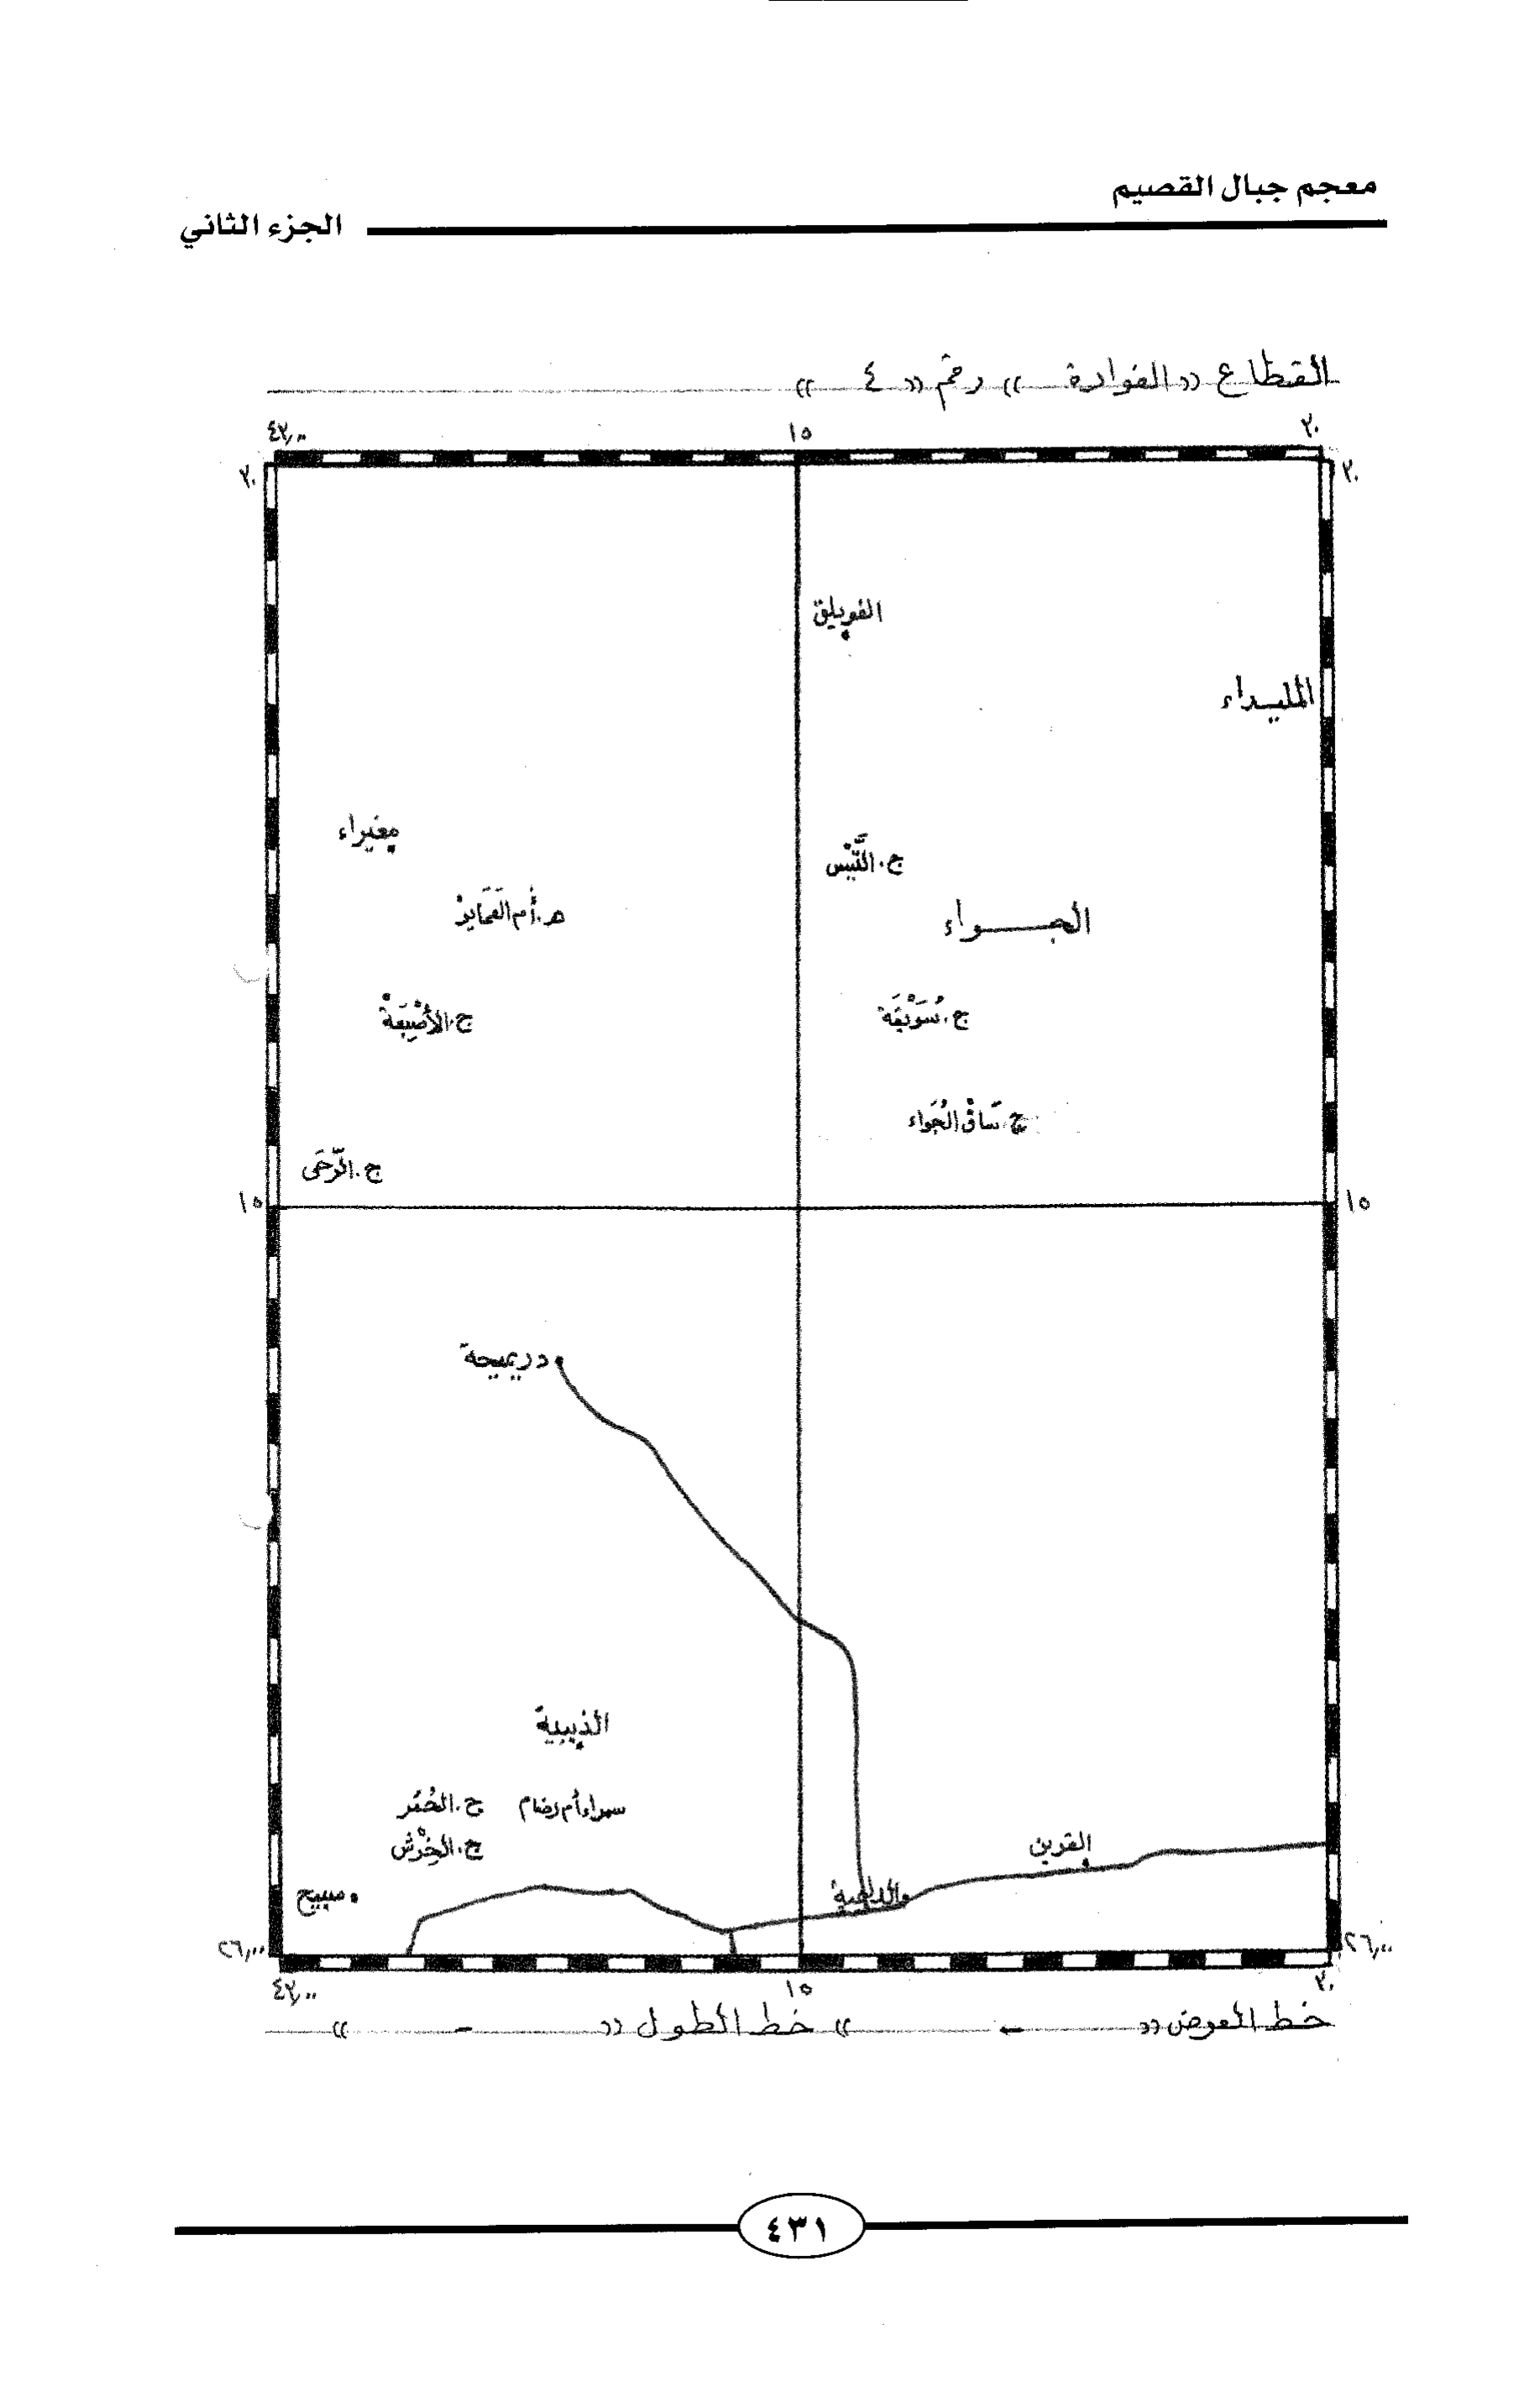 معجم جبال القصيم
الجزء الثاني
القطاع «الفوارة» رقم «٤»
٤٣٫٠٠ ١٥ ٣٠
٣٠ ٣٠
الفويلق
المليداء
مغيراء
ج. التَّيْس
هـ. أم القمايد
الجـــواء
ج. الأُصْبُعَةْ
ج. سُوَيْقَة
ج. سَاق الجُوَاء
ج. الرَّحَى
١٥ ١٥
دريميحة
الذيبية
ج. الخُثُر سمراء أم رضام
ج. الخِرْش
القرين
صبيح
٢٦٫٠٠ ٢٦٫٠٠
٤٣٫٠٠ ١٥ ٣٠
خط العرض « - » خط الطول « - »
٤٣١